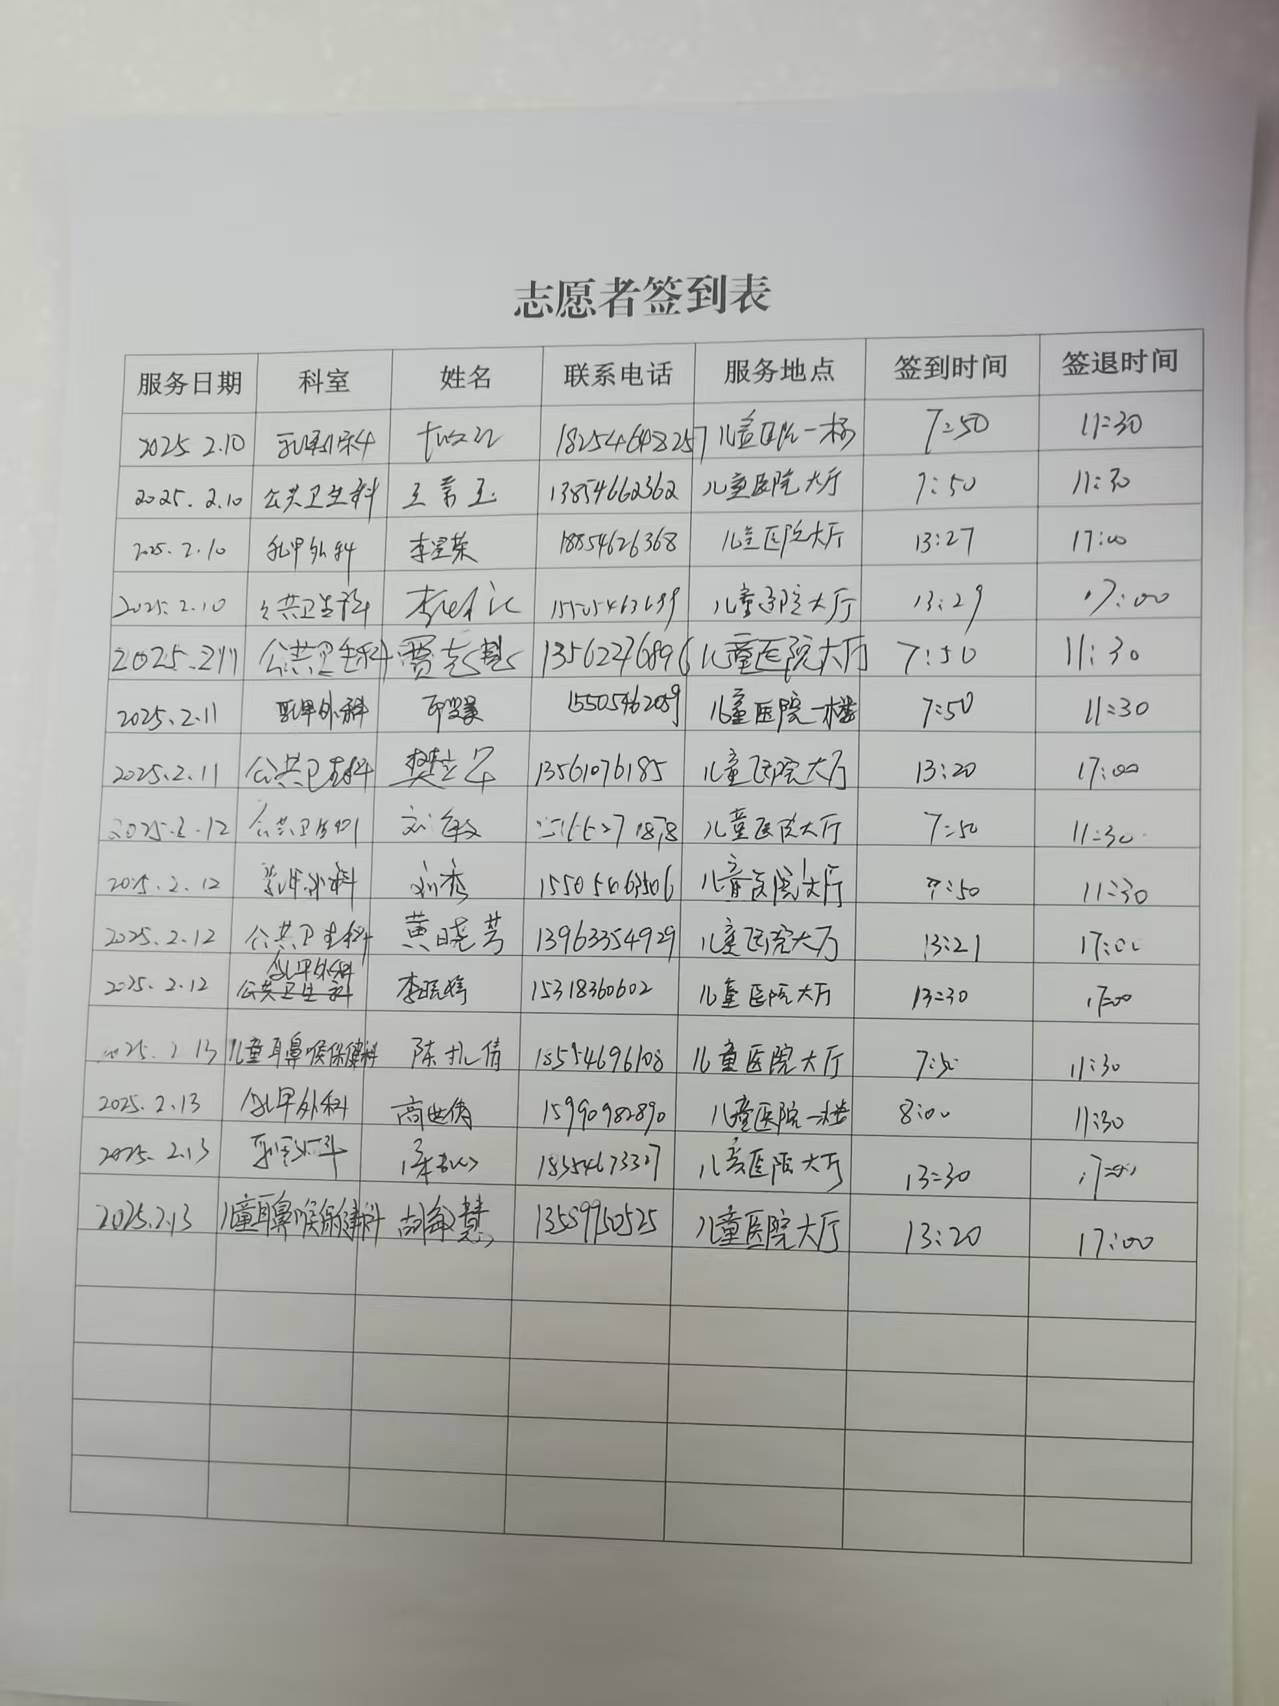 志愿者签到表
服务日期 科室 姓名 联系电话 服务地点 签到时间 签退时间
2025. 2.10 18254648257 儿童医院一楼 7:50 11:30
2025. 2.10 公共卫生科 13854662362 儿童医院大厅 7:50 11:30
2025. 2.10 乳甲外科 李星荣 18854626368 儿童医院大厅 13:27 17:00
2025. 2.10 公共卫生科 儿童医院大厅 13:29 17:00
2025. 2.11 公共卫生科 13562276896 儿童医院大厅 7:50 11:30
2025.2.11 乳甲外科 15505462059 儿童医院一楼 7:50 11:30
2025.2.11 公共卫生科 13561076185 儿童医院大厅 13:20 17:00
2025.2.12 公共卫生科 刘敏 儿童医院大厅 7:50 11:30
2025.2.12 外科 刘秀 儿童医院大厅 7:50 11:30
2025.2.12 公共卫生科 黄晓芳 13963354929 儿童医院大厅 13:21 17:00
2025.2.12 乳甲外科 15318360602 儿童医院大厅 13:30 17:00
2025. 2.13 儿童耳鼻喉保健科 18554696108 儿童医院大厅 7:50 11:30
2025. 2.13 乳甲外科 15990982890 儿童医院一楼 8:00 11:30
2025. 2.13 18554673307 儿童医院大厅 13:30 17:00
2025.2.13 儿童耳鼻喉保健科 13589950525 儿童医院大厅 13:20 17:00